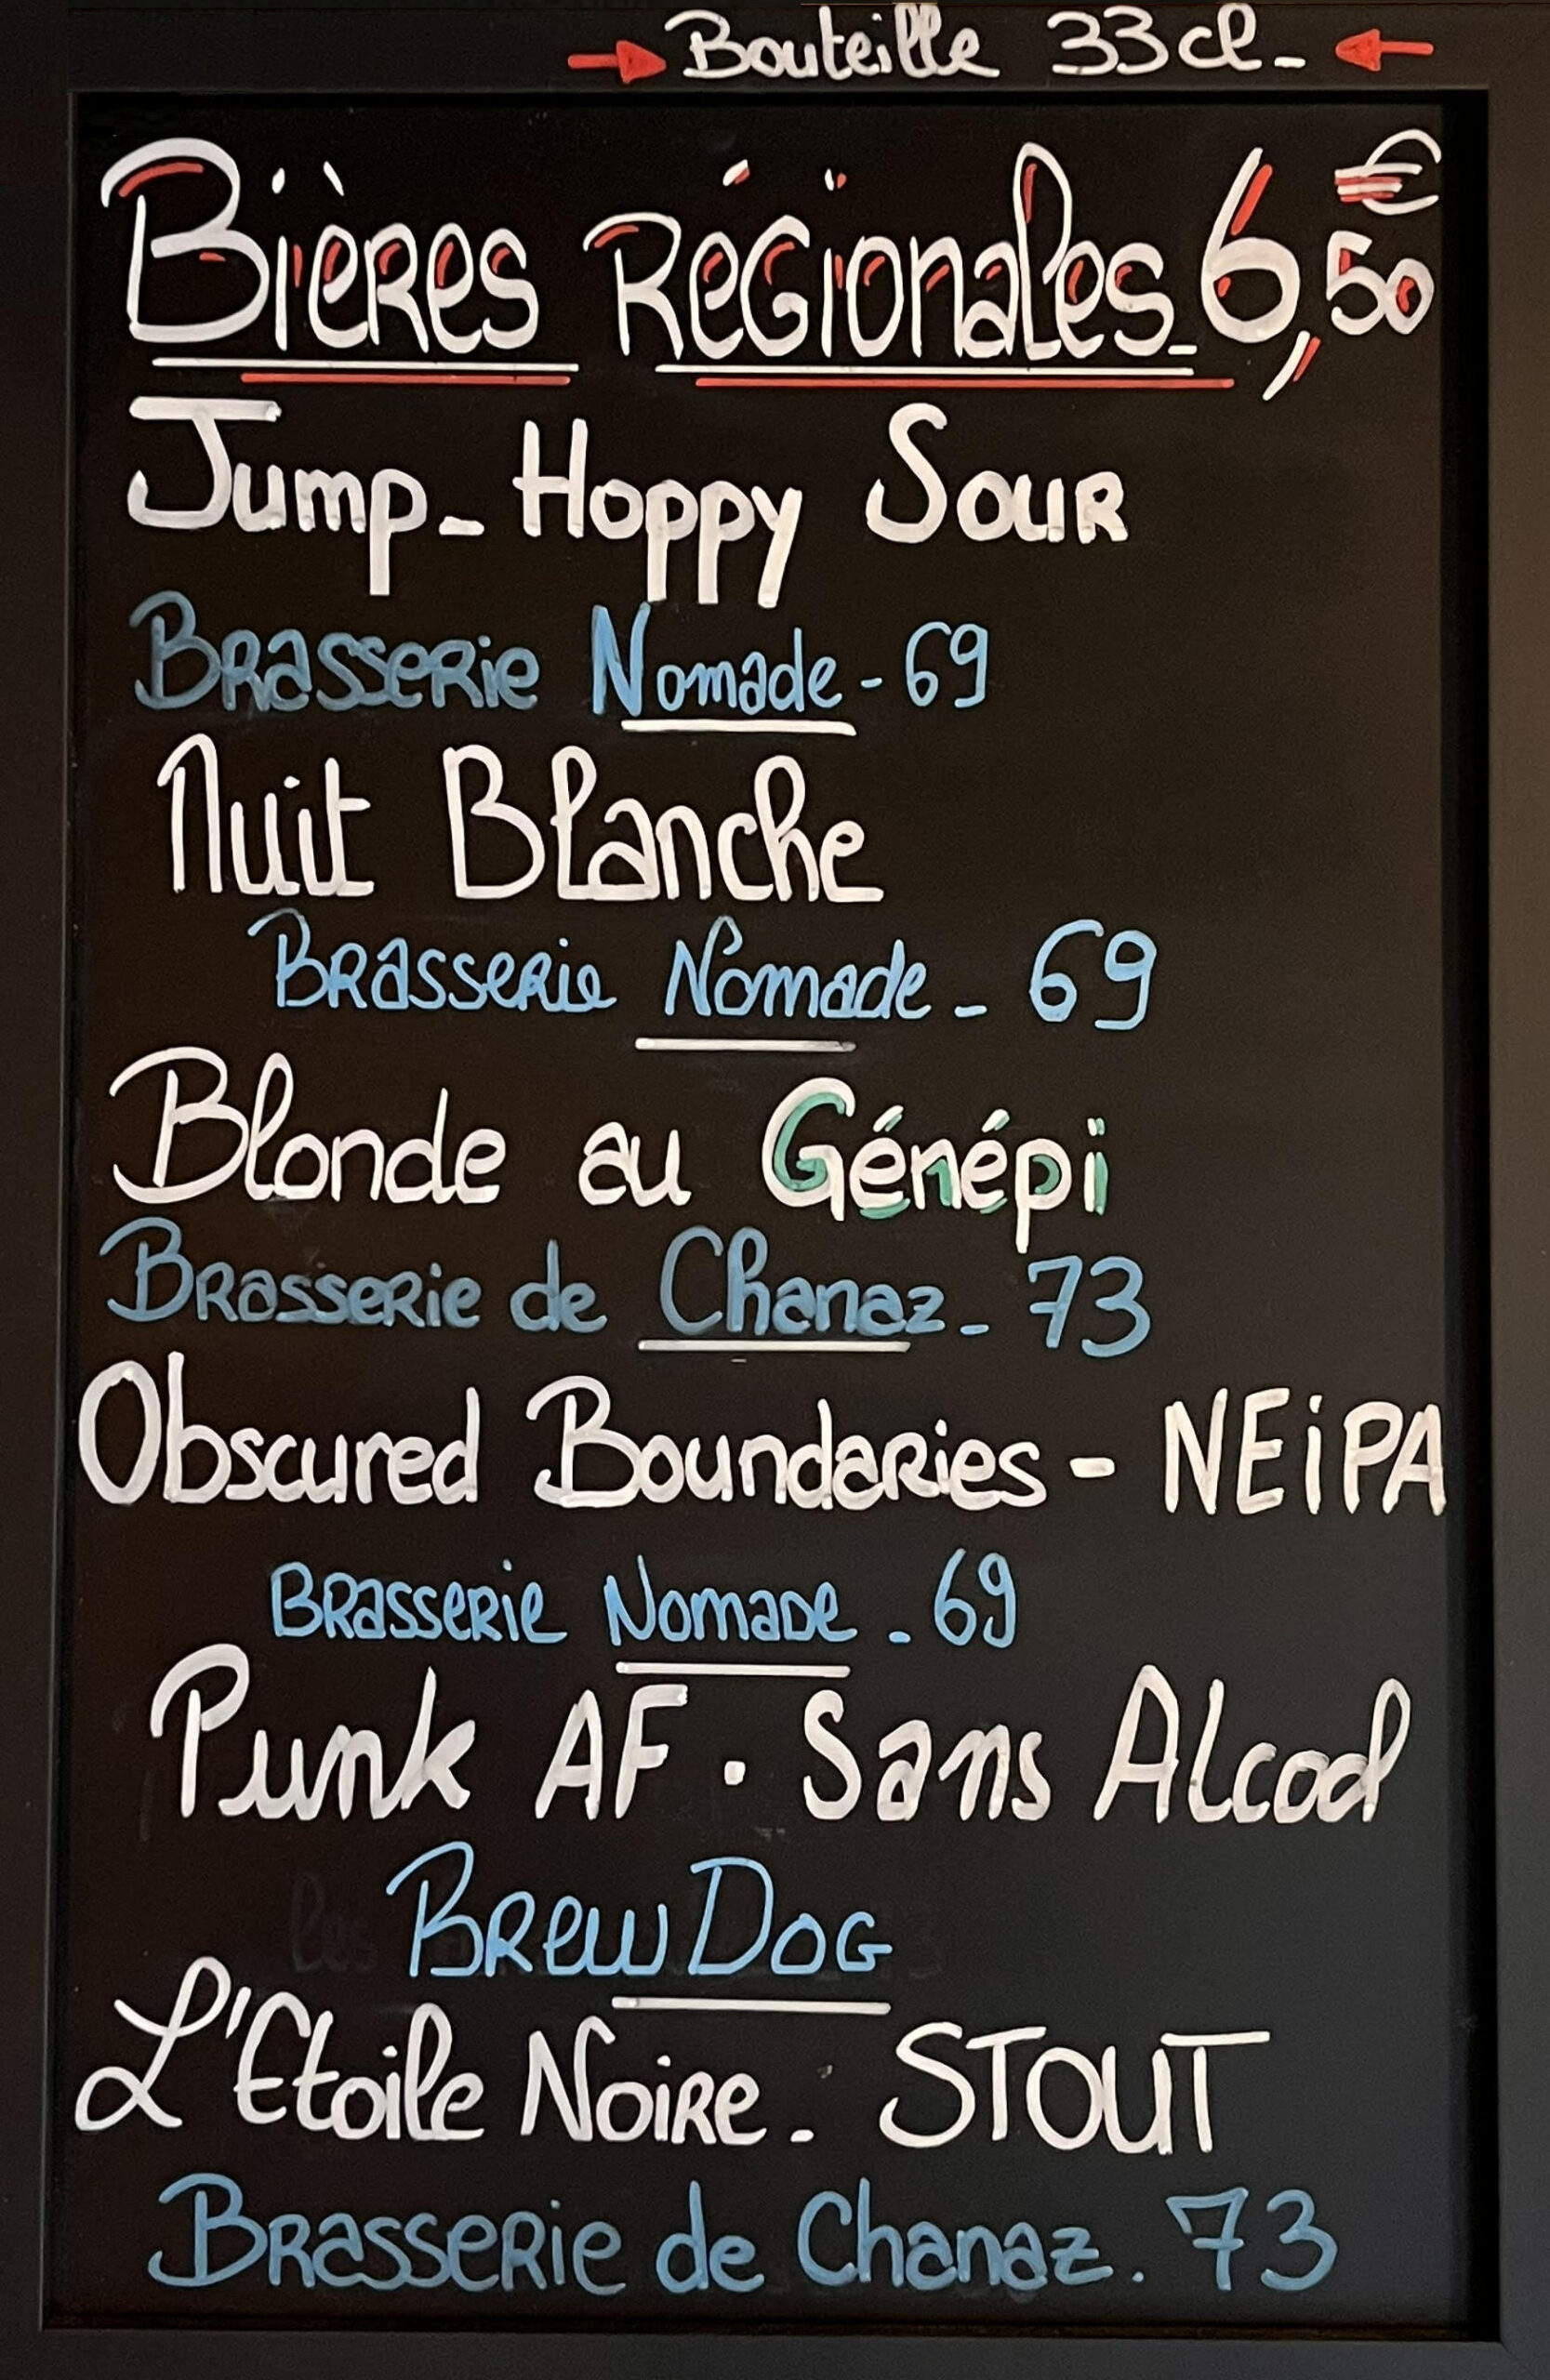 Bouteille 33cl_
Bières Régionales_ 6,50 €
Jump_ Hoppy Sour
Brasserie Nomade - 69
Nuit Blanche
Brasserie Nomade _ 69
Blonde au Génépi
Brasserie de Chanaz _ 73
Obscured Boundaries - NEiPA
Brasserie Nomade . 69
Punk AF . Sans Alcool
BrewDog
L'Etoile Noire . STOUT
Brasserie de Chanaz . 73